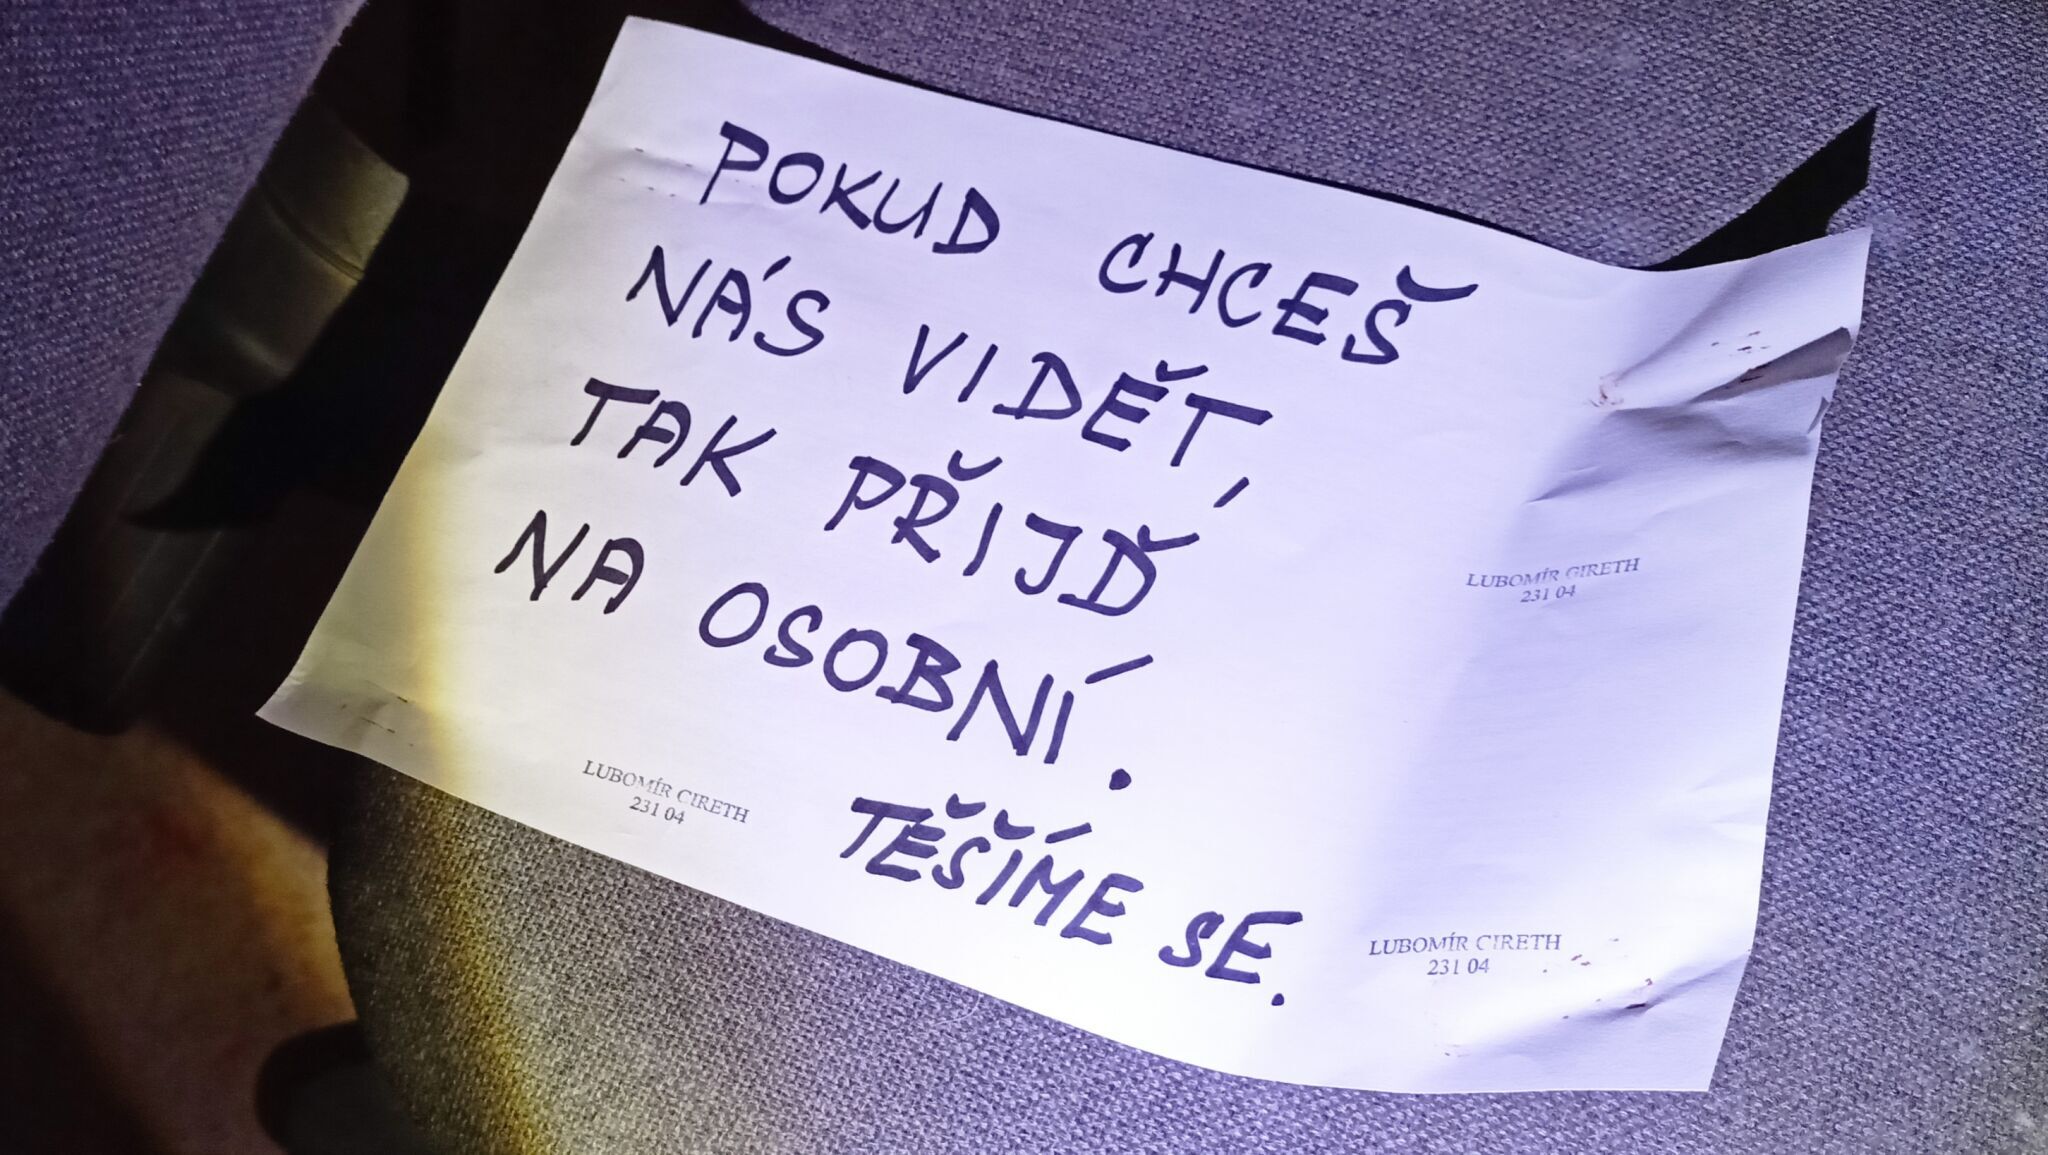 POKUD CHCEŠ
NÁS VIDĚT,
TAK PŘIJĎ
NA OSOBNÍ.
TĚŠÍME SE.
LUBOMÍR GIRETH
231 04
LUBOMÍR CIRETH
231 04
LUBOMÍR CIRETH
231 04